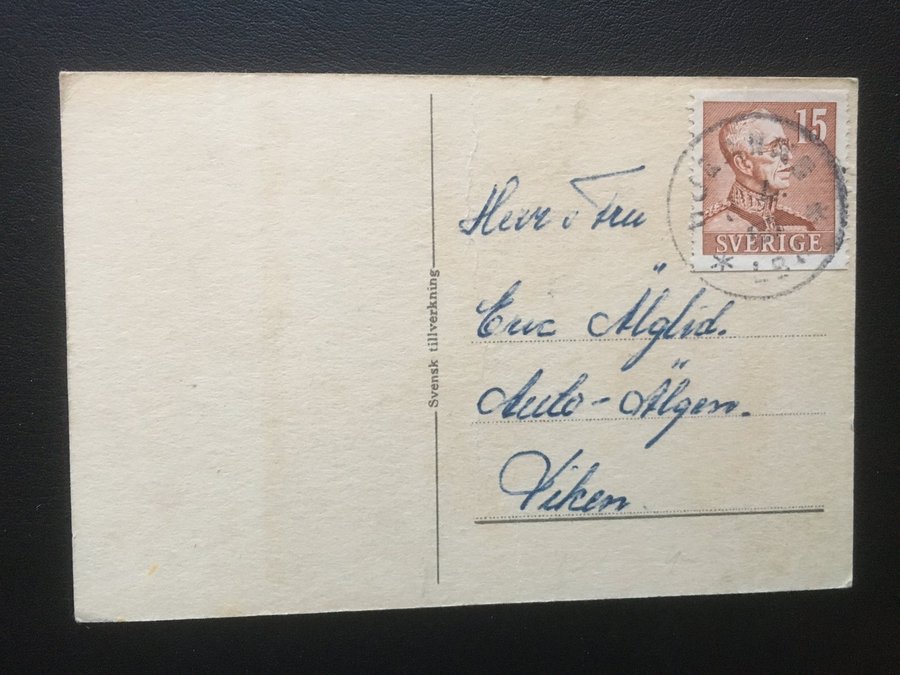 15
SVERIGE
Herr o Fru
Eric Älglid.
Auto-Älgen.
Viken
Svensk tillverkning